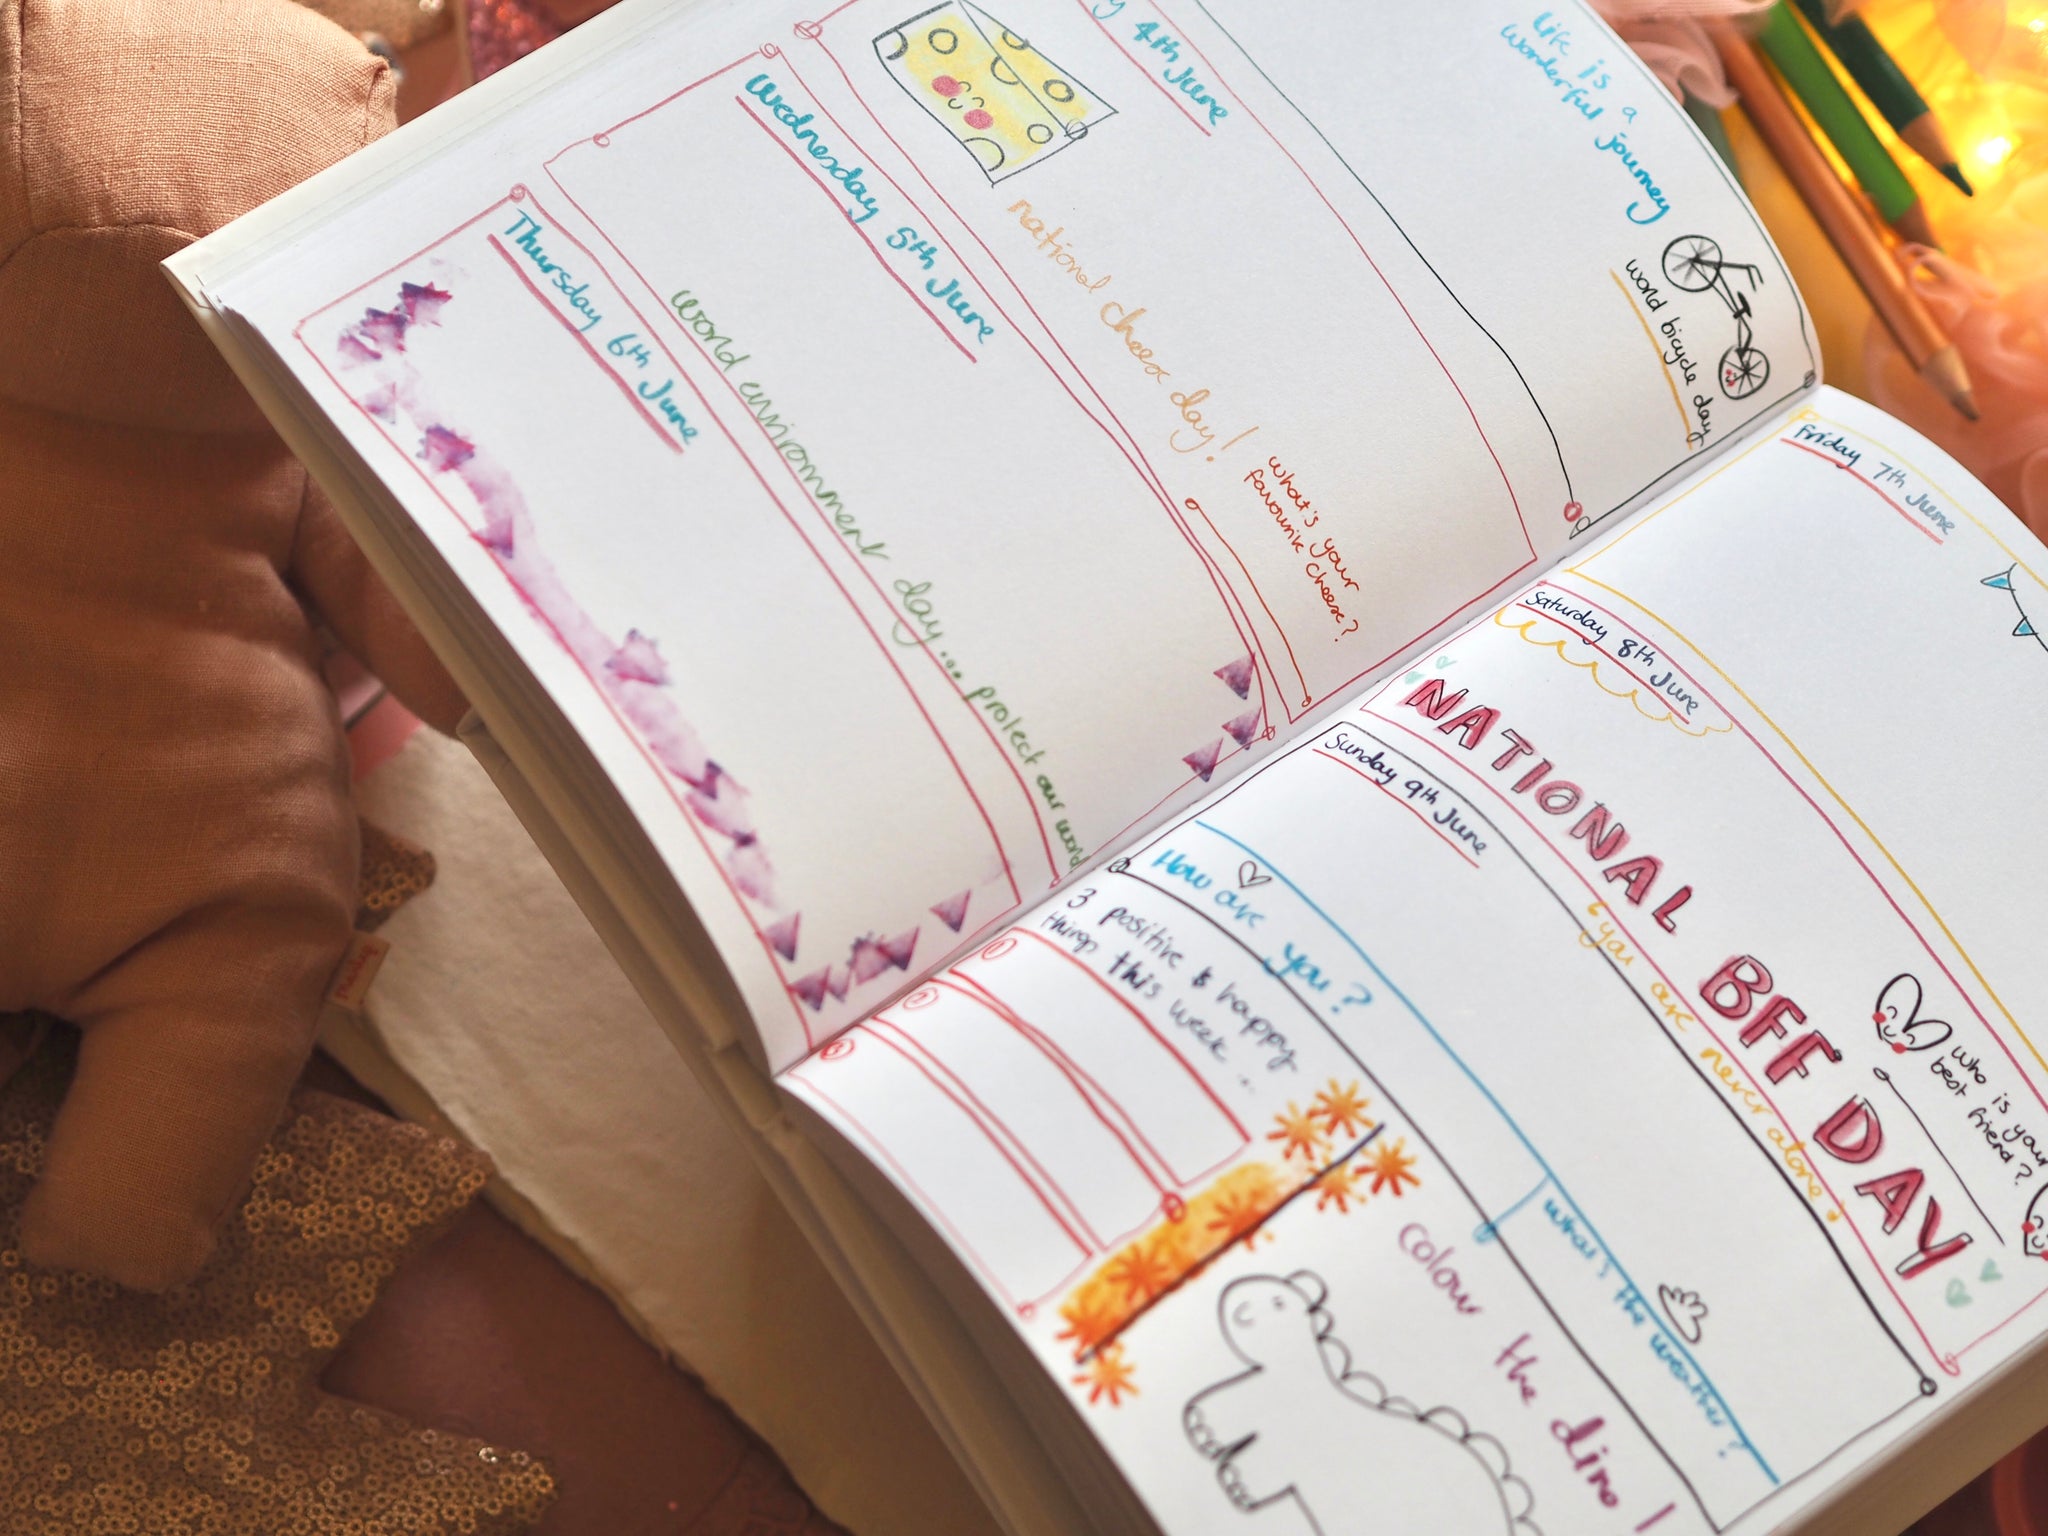 life is a
wonderful journey
world bicycle day
4th June
national cheese day!
what's your
favourite cheese?
Wednesday 5th June
world environment day... protect our world
Thursday 6th June
Friday 7th June
Saturday 8th June
NATIONAL BFF DAY
you are never alone
who is your
best friend?
Sunday 9th June
How are you?
what's the weather?
3 positive & happy
things this week...
1
2
3
colour the dino!